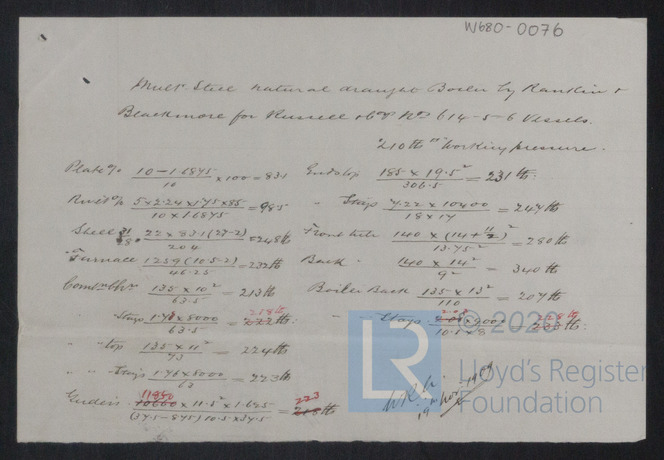 W680-0076
Mult. Steel natural draught Boiler by Rankin &
Blackmore for Russell & Co's Nos 614-5-6 Vessels.
210 lb working pressure.
Plate % 10-1.6875 / 10 × 100 = 83.1
Rivet % 5 × 2.24 × 1.75 × 85 / 10 × 1.6875 = 98.5
Shell 22 × 83.1 (27-2) / 204 = 248 lb
Furnace 1259 (10.5-2) / 46.25 = 232 lb
135 × 10² / 63.5 = 213 lb
Stays × 8000 / 63.5 = 218 lb
" top 135 × 11² / 73 = 224 lb
" " Stays 1.76 × 8000 / 63 = 223 lb
× 11.5² × 1.625 / 10.5 × 34.5 = 223 lb
End top 185 × 19.5² / 306.5 = 231 lb.
" Stays 7.22 × 10400 / 18 × 17 = 247 lb
140 × (14 + 11/2)² / 13.75² = 280 lb
Back " 140 × 14² / 9² = 340 lb
Boiler Back 135 × 13² / 110 = 207 lb
" Stays
19th Nov. 1909
LR
Lloyd's Register
Foundation